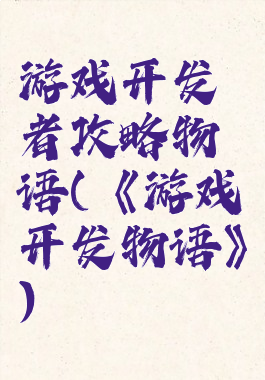 游戏开发
者攻略物
语(《游戏
开发物语》
)